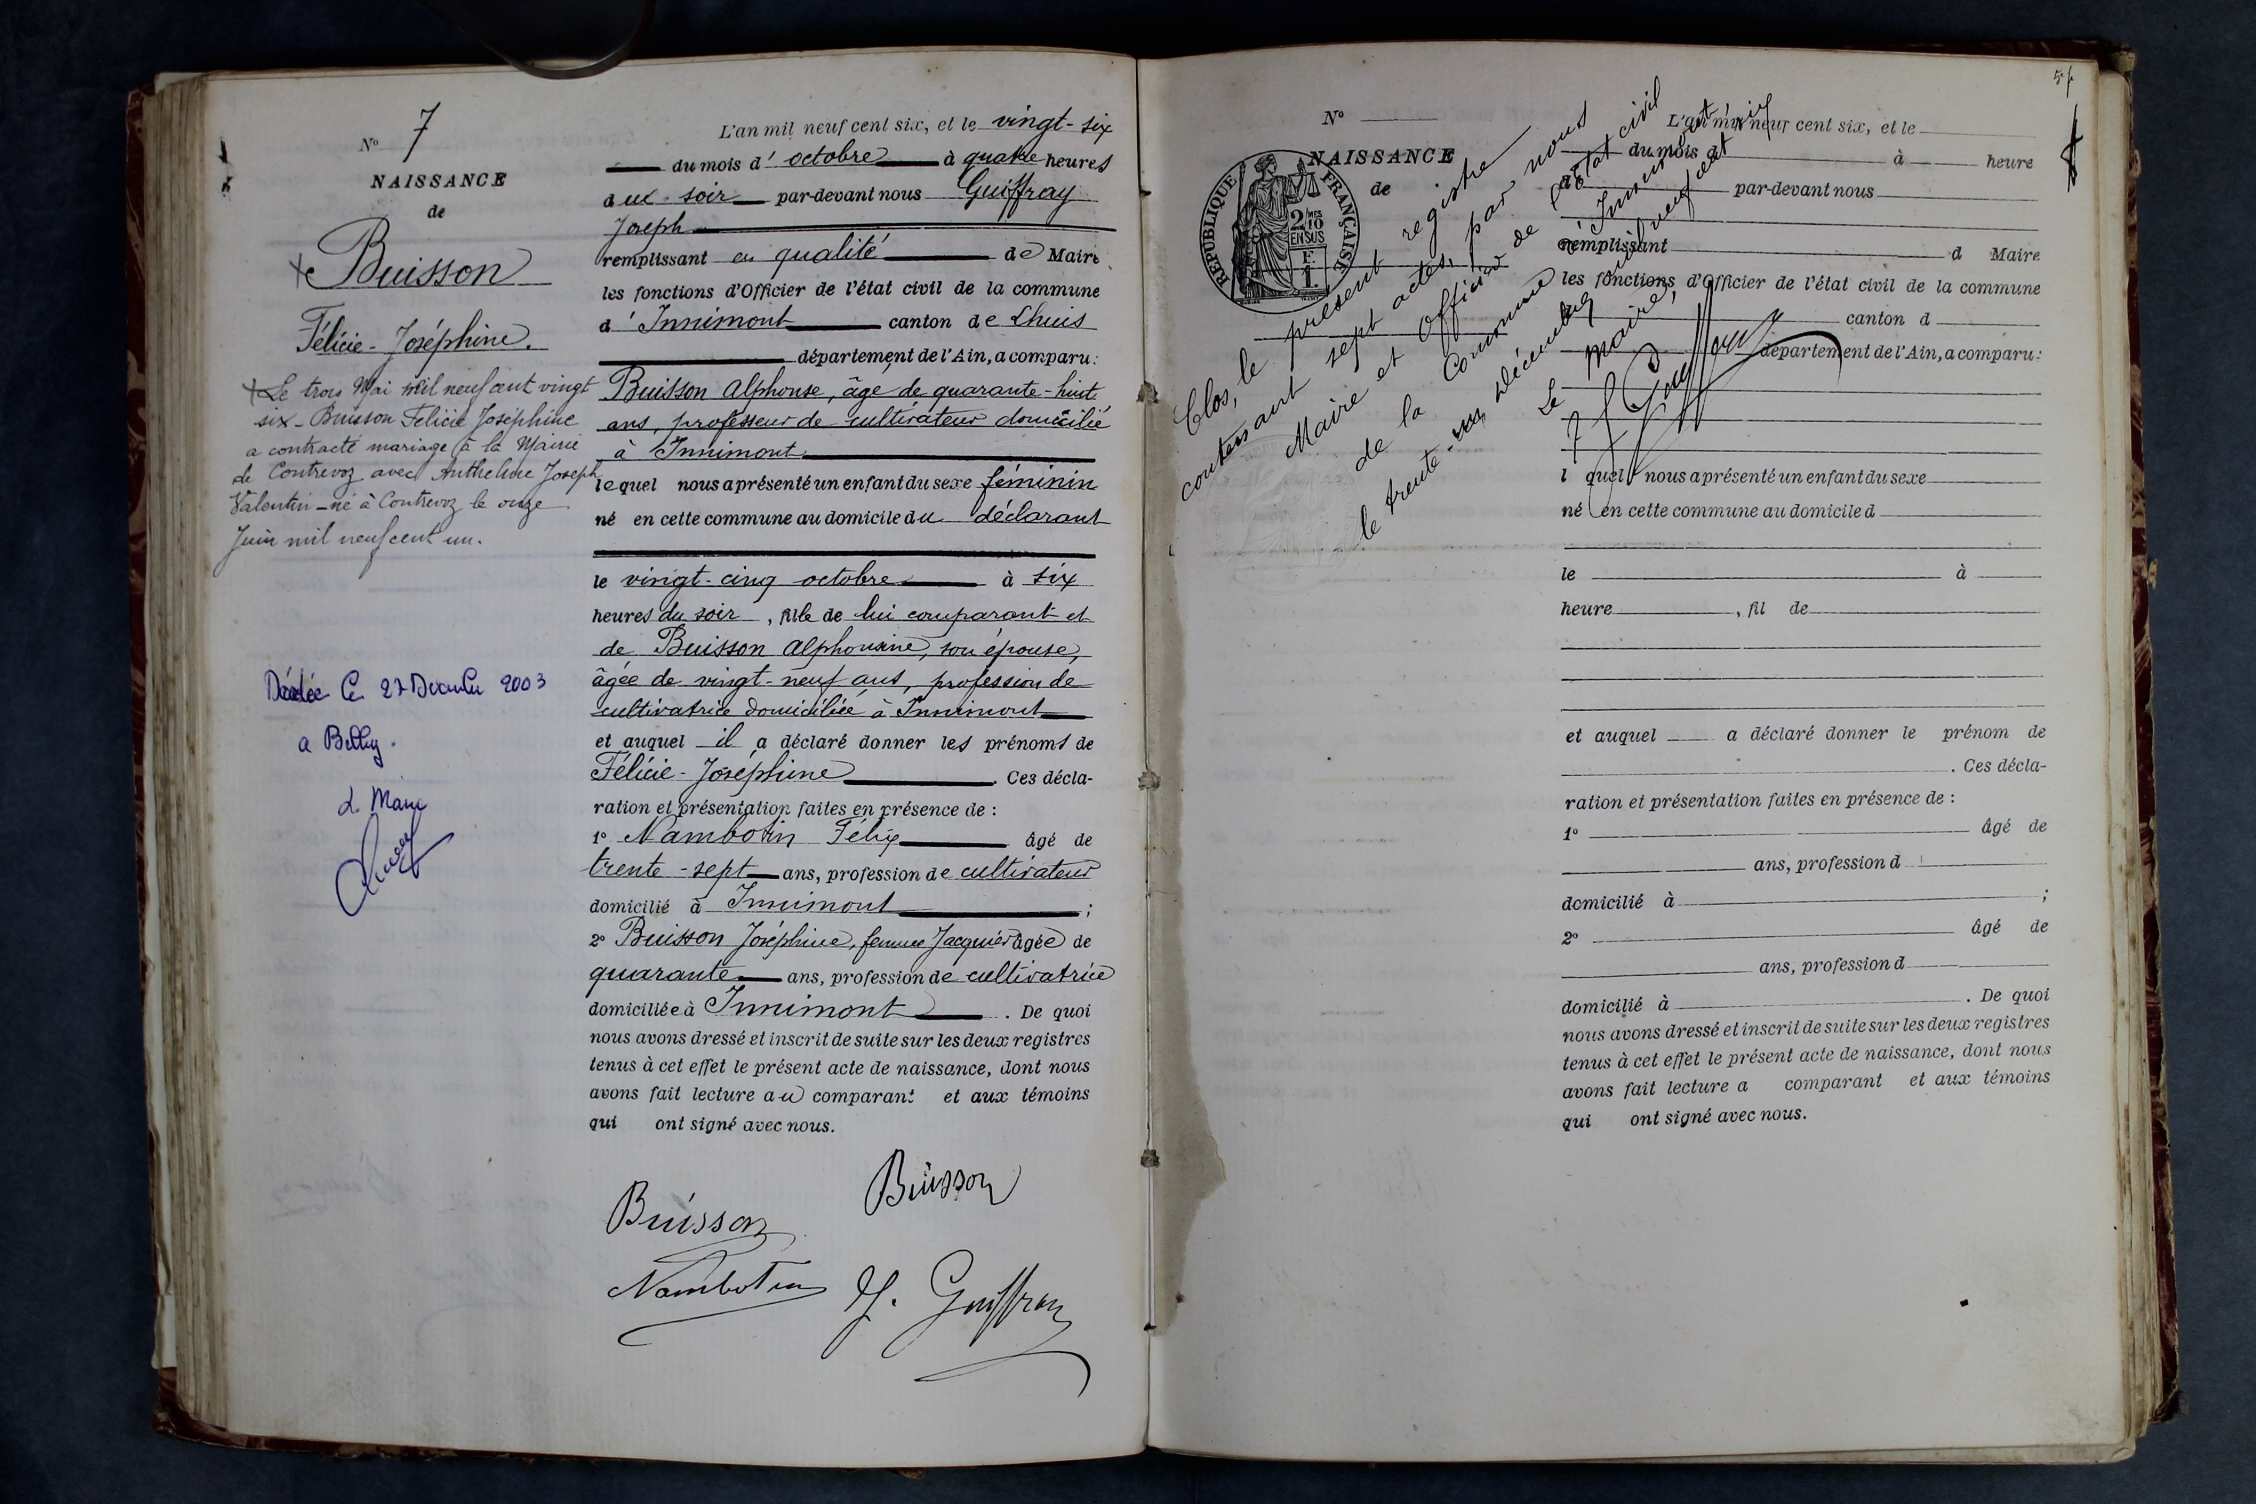 N° 7
NAISSANCE
de
Buisson
Félicie-Joséphine.
Le trois Mai mil neuf cent vingt
six - Buisson Félicie Joséphine
a contracté mariage à la Mairie
de Contrevoz avec Anthelme Joseph
Valentin - né à Contrevoz le onze
Juin mil neuf cent un.
Décédée le 27 Décembre 2003
a Belley.
L. Maire
L'an mil neuf cent six, et le vingt-six
du mois d'octobre à quatre heures
du soir par-devant nous Guiffray
Joseph
remplissant en qualité de Maire
les fonctions d'Officier de l'état civil de la commune
d'Innimont canton de Lhuis
département de l'Ain, a comparu:
Buisson Alphonse, âgé de quarante-huit
ans, professeur de cultivateur domicilié
à Innimont
lequel nous a présenté un enfant du sexe féminin
né en cette commune au domicile du déclarant
le vingt-cinq octobre à six
heures du soir, fille de lui comparant et
de Buisson Alphonsine, son épouse,
âgée de vingt-neuf ans, profession de
cultivatrice domiciliée à Innimont
et auquel il a déclaré donner les prénoms de
Félicie-Joséphine. Ces décla-
ration et présentation faites en présence de :
1° Nambotin Félix âgé de
trente-sept ans, profession de cultivateur
domicilié à Innimont ;
2° Buisson Joséphine, femme Jacquier âgée de
quarante ans, profession de cultivatrice
domiciliée à Innimont. De quoi
nous avons dressé et inscrit de suite sur les deux registres
tenus à cet effet le présent acte de naissance, dont nous
avons fait lecture au comparant et aux témoins
qui ont signé avec nous.
Buisson
Buisson
Nambotin
J. Guiffray
N°
NAISSANCE
de
RÉPUBLIQUE FRANÇAISE
2/10 MES
EN SUS
F.
1.
Clos, le présent registre
contenant sept actes, par nous
Maire et Officier de l'état civil
de la Commune d'Innimont
le trente-un Décembre mil neuf cent six
Le Maire,
J Guiffray
L'an mil neuf cent six, et le
du mois d à heure
d par-devant nous
remplissant d Maire
les fonctions d'Officier de l'état civil de la commune
d canton d
département de l'Ain, a comparu:
l quel nous a présenté un enfant du sexe
né en cette commune au domicile d
le à
heure, fil de
et auquel a déclaré donner le prénom de
. Ces décla-
ration et présentation faites en présence de :
1° âgé de
ans, profession d
domicilié à ;
2° âgé de
ans, profession d
domicilié à . De quoi
nous avons dressé et inscrit de suite sur les deux registres
tenus à cet effet le présent acte de naissance, dont nous
avons fait lecture a comparant et aux témoins
qui ont signé avec nous.